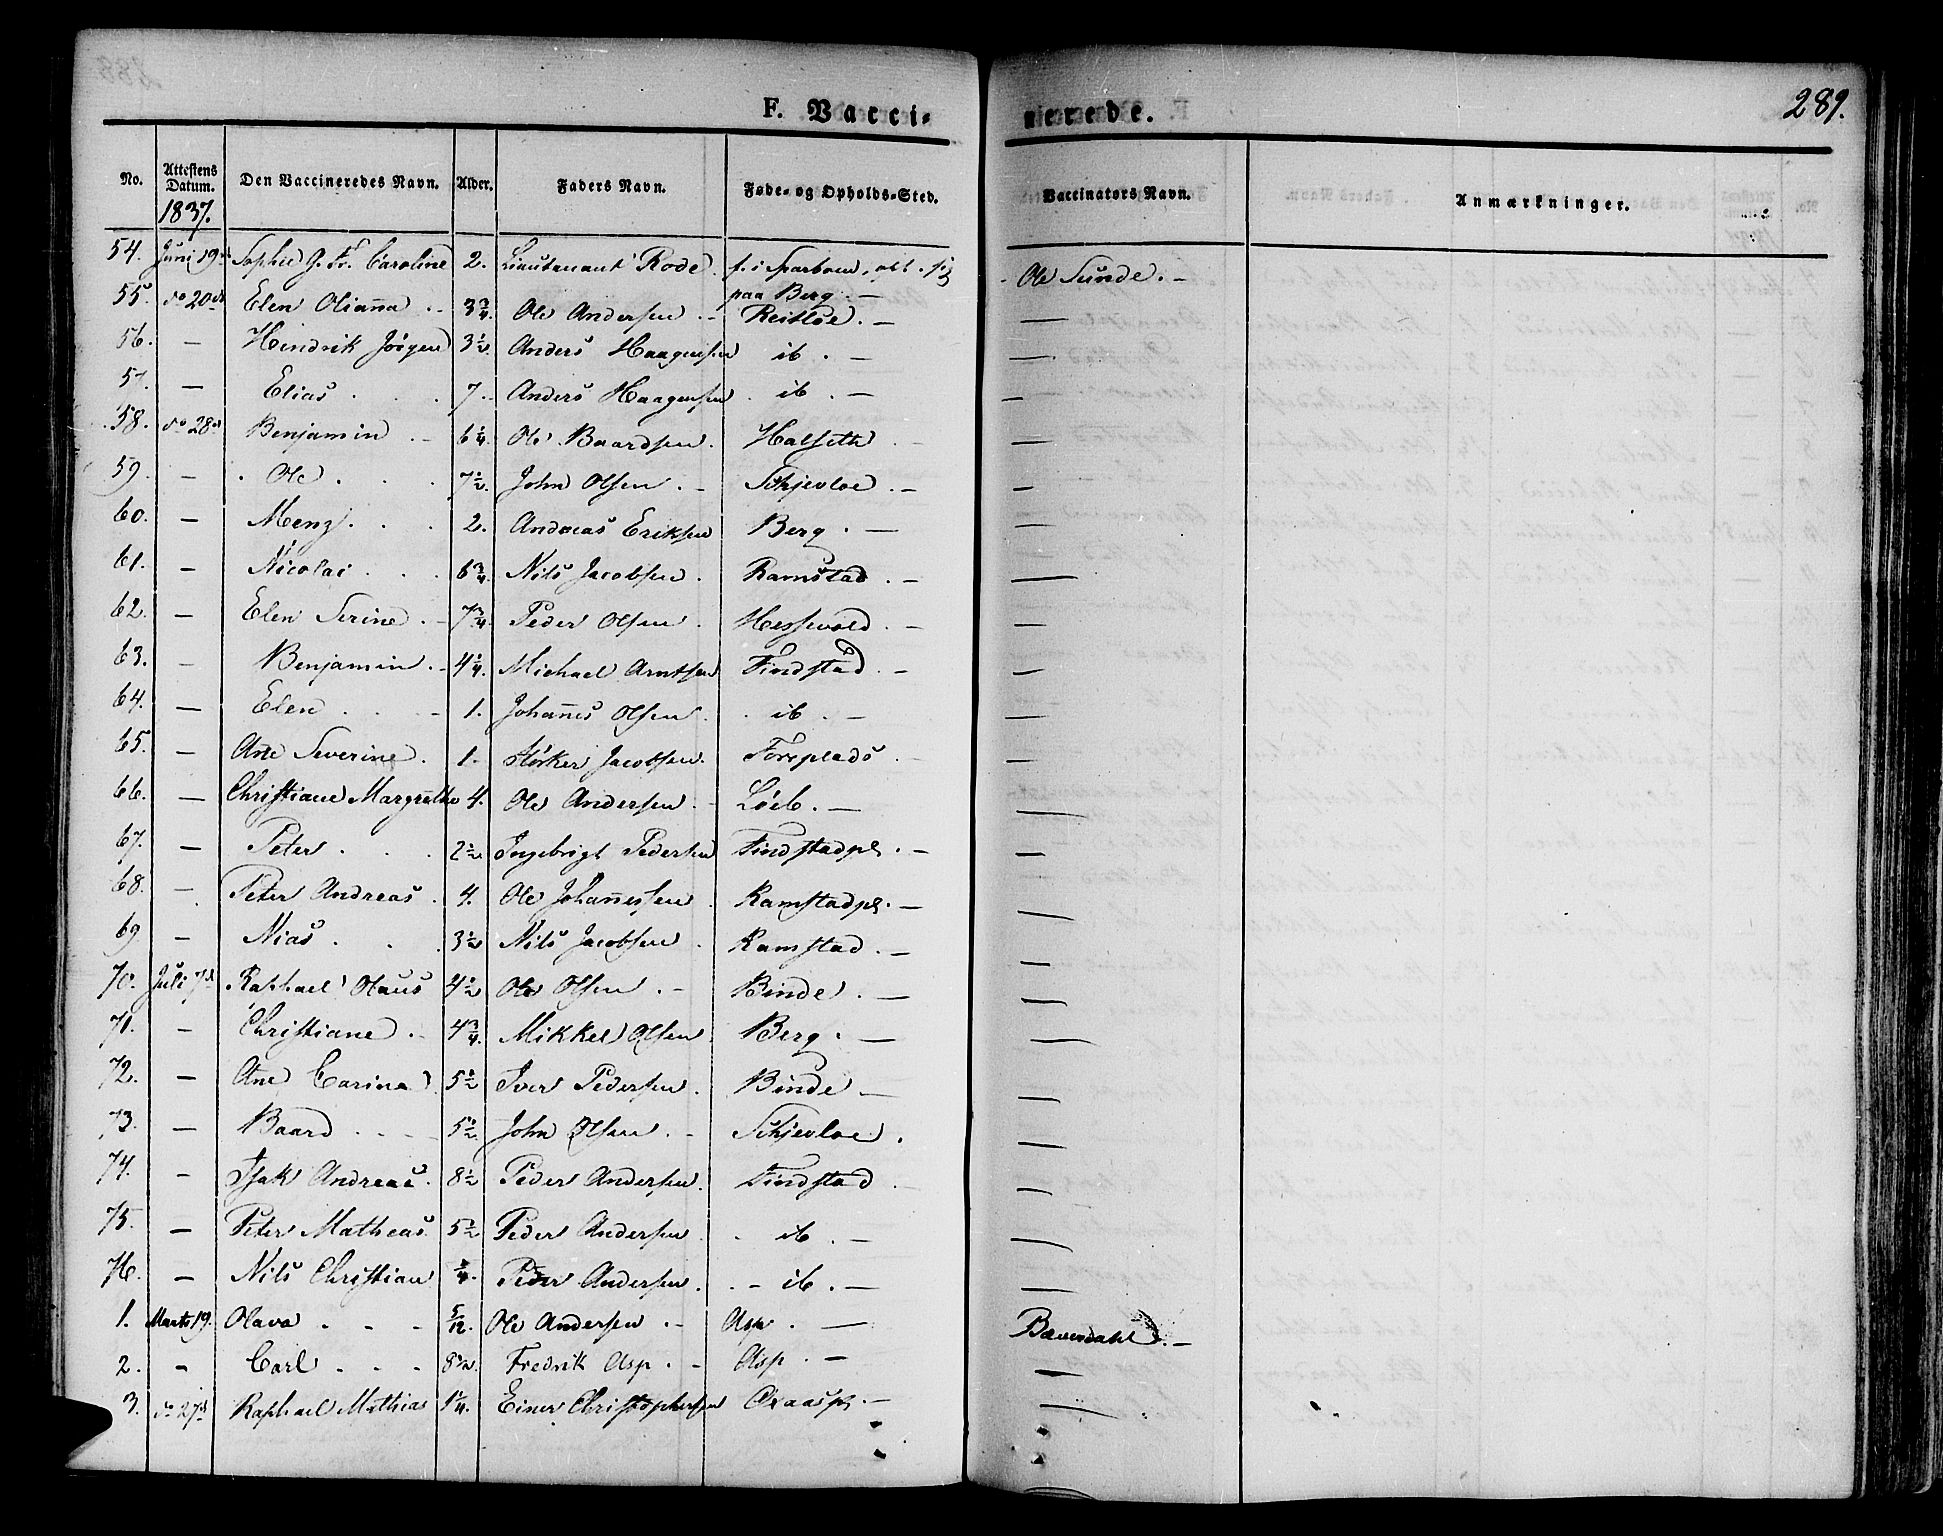 F. Vacci-
nerede.
289.
No. Attestens Datum. Den Vaccineredes Navn. Alder. Faders Navn. Føde- og Opholds-Sted. Vaccinators Navn. Anmærkninger.
1837.
54. Juni 19de Sophie G. Fr. Caroline 2. Lieutenant Rode. f. i Sparboen, opt. sig paa Berg. — Ole Sunde. —
55. do 20de Elen Oliaña 3 3/4. Ole Andersen Reitløe. — —
56. — Heindrik Jørgen 3 1/2 Anders Haagensen ib. — —
57. — Elias 7. Anders Haagensen ib. — —
58. do 28de Benjamin 6 1/4. Ole Baardsen Halseth —
59. — Ole 7 1/2. John Olsen Schjevloe. — —
60. — Menz 2. Andreas Eriksen Berg. — —
61. — Nicolai 6 3/4 Nils Jacobsen Ramstad. — —
62. — Elen Serine 7 3/4. Peder Olsen Hessevold. — —
63. — Benjamin 4 1/4. Michael Arntsen Findstad. — —
64. — Elen 1. Johañes Olsen ib. — —
65. — Ane Severine 1. Størker Jacobsen. Foreplads —
66. — Christiane Margrethe 4. Ole Andersen Løeb. — —
67. — Peter 2 1/2 Ingebrigt Pedersen Findstadpl. — —
68. — Peter Andreas 4. Ole Johañessen Ramstadpl. — —
69 — Nias 3 1/2 Nils Jacobsen Ramstad. — —
70. Juli 7de Raphael Olaus 4 1/2 Ole Olsen Binde. — —
71. — Christiane 4 3/4. Mikkel Olsen Berg. — —
72. — Ane Carina 5 1/2 Iver Pedersen Binde — —
73. — Baard 5 1/2. John Olsen Schjevloe. —
74. — Isak Andreas 8 1/2 Peder Andersen Findstad —
75. — Peter Matheas 5 1/2 Peder Andersen ib. — —
76. — Nils Christian 3/4. Peder Andersen. ib. — —
1. Marts 19. Olava 5/12 Ole Andersen Asp. — Bævendahl. —
2. — Carl 8/12. Fredrik Asp Asp. — —
3. do 27de Raphael Mathias 1 1/4. Einer Christophersen —